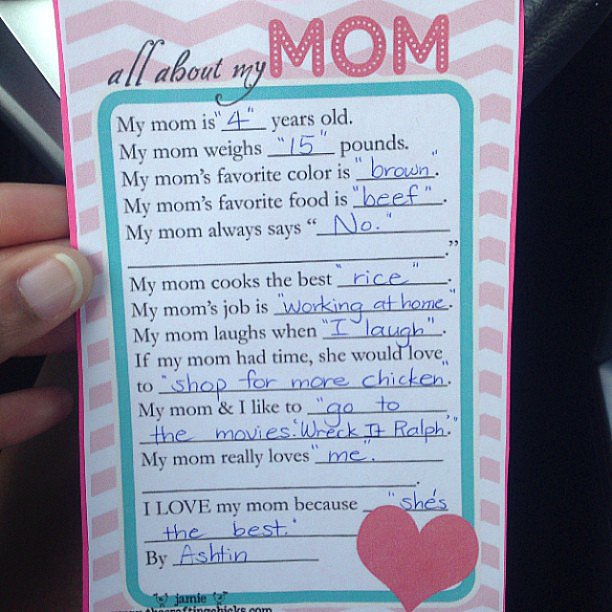 all about my MOM
My mom is "4" years old.
My mom weighs "15" pounds.
My mom's favorite color is "brown".
My mom's favorite food is "beef".
My mom always says " No."
"
My mom cooks the best "rice".
My mom's job is "working at home."
My mom laughs when "I laugh".
If my mom had time, she would love
to "shop for more chicken".
My mom & I like to "go to
the movies: 'Wreck It Ralph.'"
My mom really loves "me".
.
I LOVE my mom because "she's
the best."
By Ashtin
jamie
www.thecraftingchicks.com